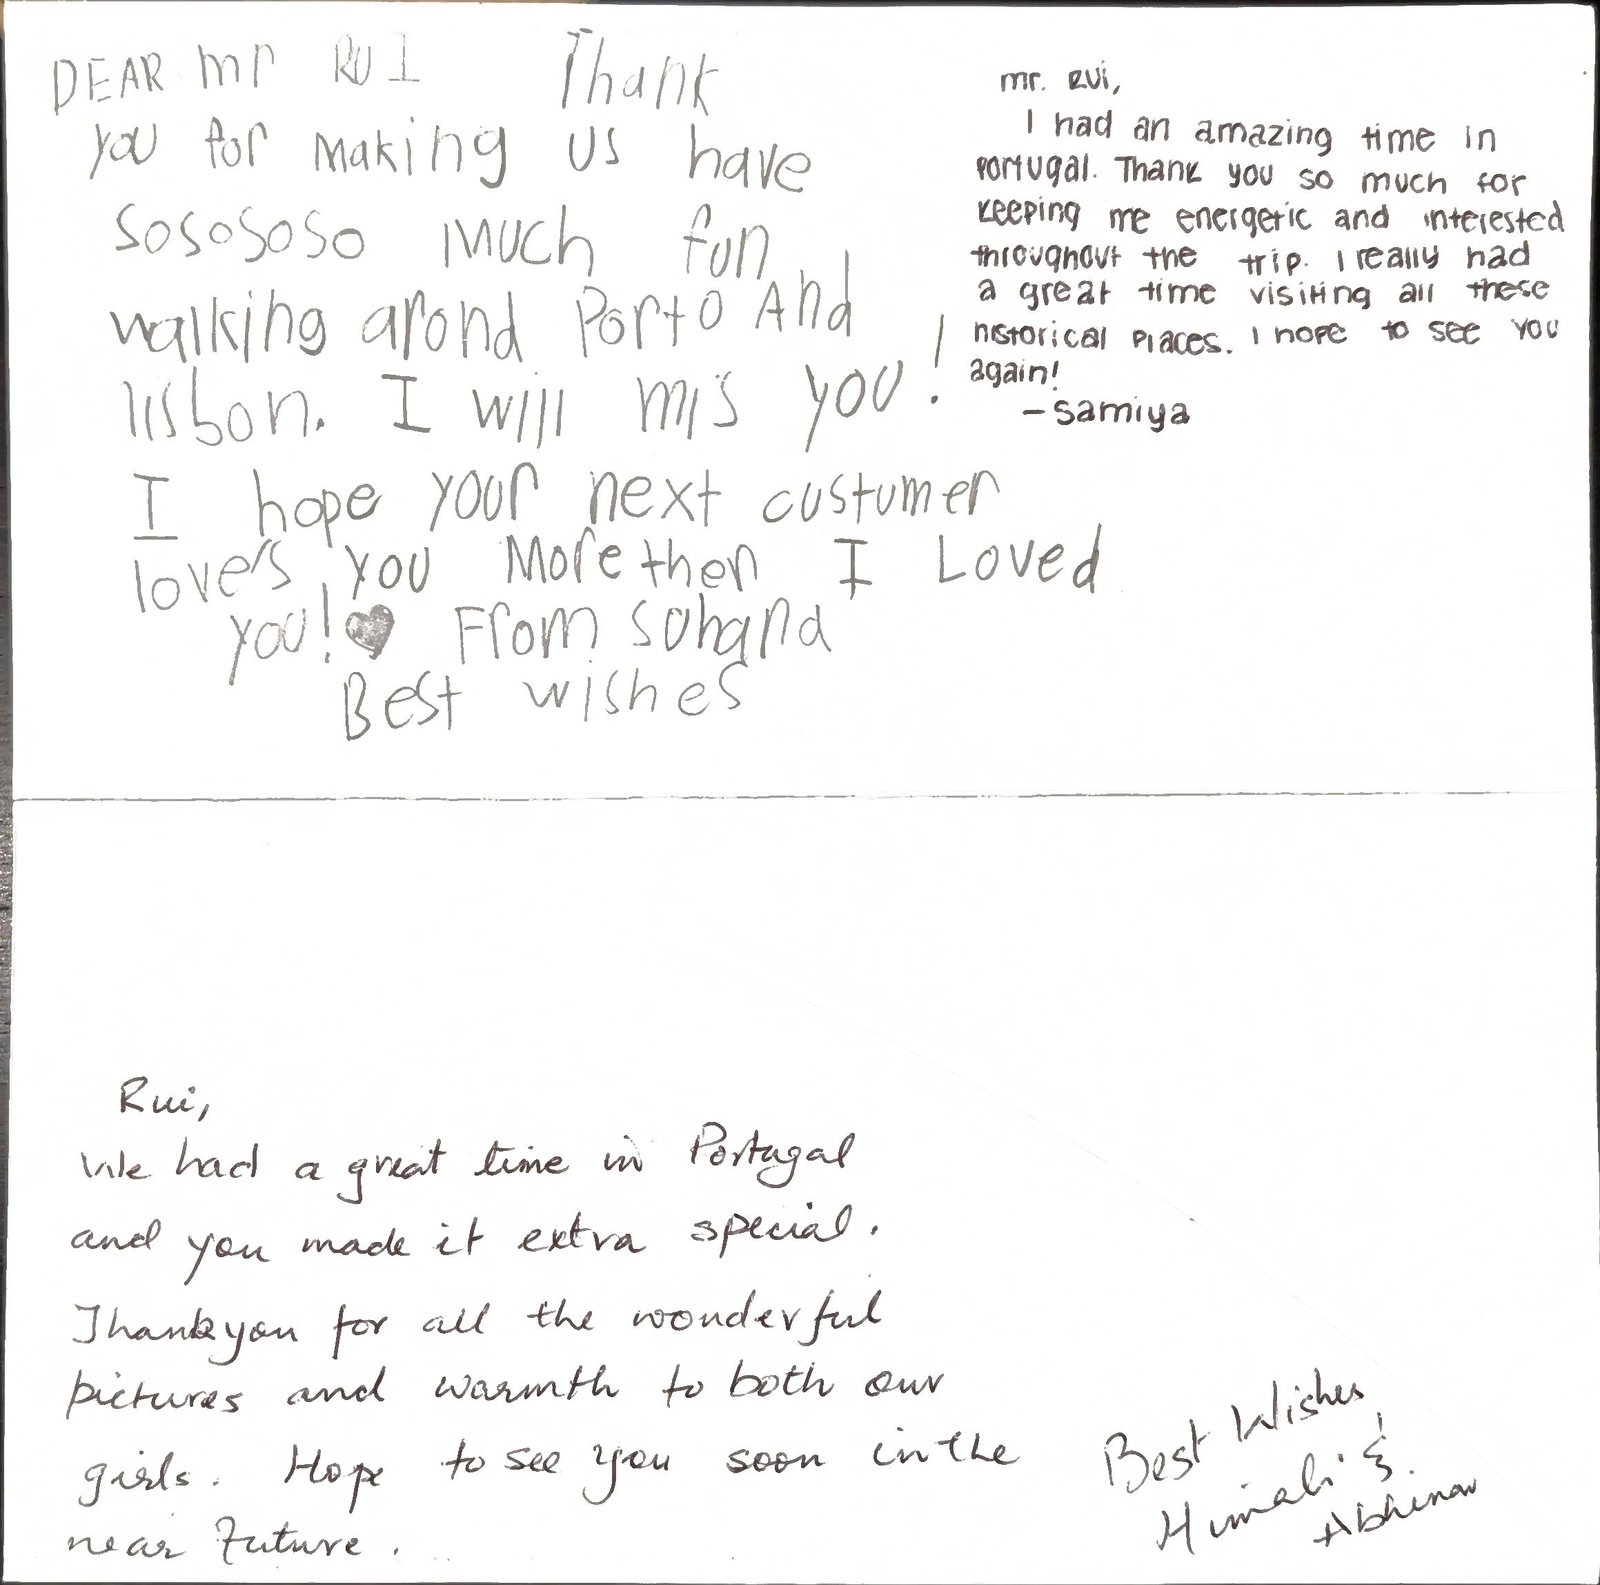 DEAR mr RUI Thank
you for making us have
sosososo much fun
walking arond Porto And
lisbon. I will mis you!
I hope your next custumer
lovers you More then I Loved
you!♥ From Suhana
Best wishes
mr. Rui,
I had an amazing time in
Portugal. Thank you so much for
keeping me energetic and interested
throughout the trip. I really had
a great time visiting all these
historical places. I hope to see you
again!
- Samiya
Rui,
We had a great time in Portugal
and you made it extra special.
Thankyou for all the wonderful
pictures and warmth to both our
girls. Hope to see you soon in the
near Future.
Best Wishes
Himali &
Abhinav